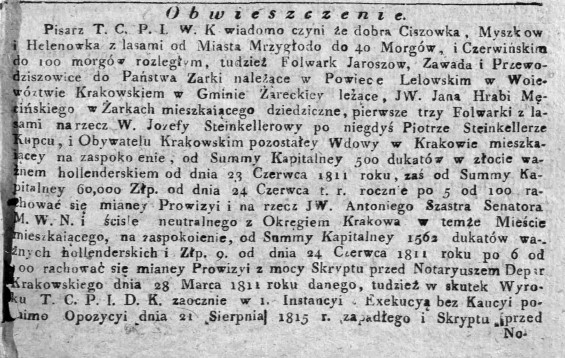 Obwieszczenie.
Pisarz T. C. P. I. W. K wiadomo czyni że dobra Ciszowka, Myszkow
i Helenowka z lasami od Miasta Mrzygłodo do 40 Morgów, i Czerwińskim
do 100 morgów rozległym, tudzież Folwark Jaroszow, Zawada i Przewo-
dziszowice do Państwa Zarki należące w Powiece Lelowskim w Woie-
wództwie Krakowskiem w Gminie Żareckiey leżące, JW. Jana Hrabi Mę-
cińskiego w Żarkach mieszkaiącego dziedziczne, pierwsze trzy Folwarki z la-
sami na rzecz W. Jozefy Steinkellerowy po niegdyś Piotrze Steinkellerze
Kupcu, i Obywatelu Krakowskim pozostałey Wdowy w Krakowie mieszka-
iącey na zaspoko enie, od Summy Kapitalney 500 dukatów w złocie wa-
żnem hollenderskiem od dnia 23 Czerwca 1811 roku, zaś od Summy Ka-
pitalney 60,000 Złp. od dnia 24 Czerwca t. r. rocznie po 5 od 100 ra-
chować się mianey Prowizyi i na rzecz JW. Antoniego Szastra Senatora
M. W. N. i ściśle neutralnego z Okręgiem Krakowa w temże Mieście
mieszkaiącego, na zaspokoienie, od Summy Kapitalney 1562 dukatów wa-
żnych hollenderskich i Złp. 9. od dnia 24 Czerwca 1811 roku po 6 od
100 rachować się mianey Prowizyi z mocy Skryptu przed Notaryuszem Depar
Krakowskiego dnia 28 Marca 1811 roku danego, tudzież w skutek Wyro-
ku T. C. P. I. D. K. zaocznie w 1. Instancyi - Exekucyą bez Kaucyi po-
mimo Opozycyi dnia 21 Sierpnia 1815 r. zapadłego i Skryptu przed
No-